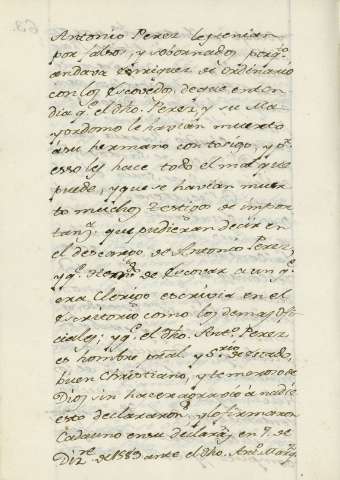 Antonio Perez le tenian
por falsos, y sobornados porq.e
andava Enriquez de Ordinario
con los Escovedos, desde enton
dia q.e el dho. Perez, y su Ma-
yordomo le havian muerto
á su hermano con tosigo, y p.r
esso les hace todo el mal que
puede, y que se havian muer
to muchos testigos de impor
tan.a que pudieran decir en
el descargo de Antonio Perez,
y q.e de Escovar a un q.e
era Clerigo escrivia en el
Escritorio como los demas Ofi-
ciales; y q.e el dho. Ant.o Perez
es hombre pral. y S.rio de estado,
buen Christiano, y temeroso de
Dios, sin hacer agravio á nadie
esto declararon, y lo firmaron
Cada uno en su declara.n en 7. de
Diz.re de 1589 ante el dho. Ant.o Marq.z